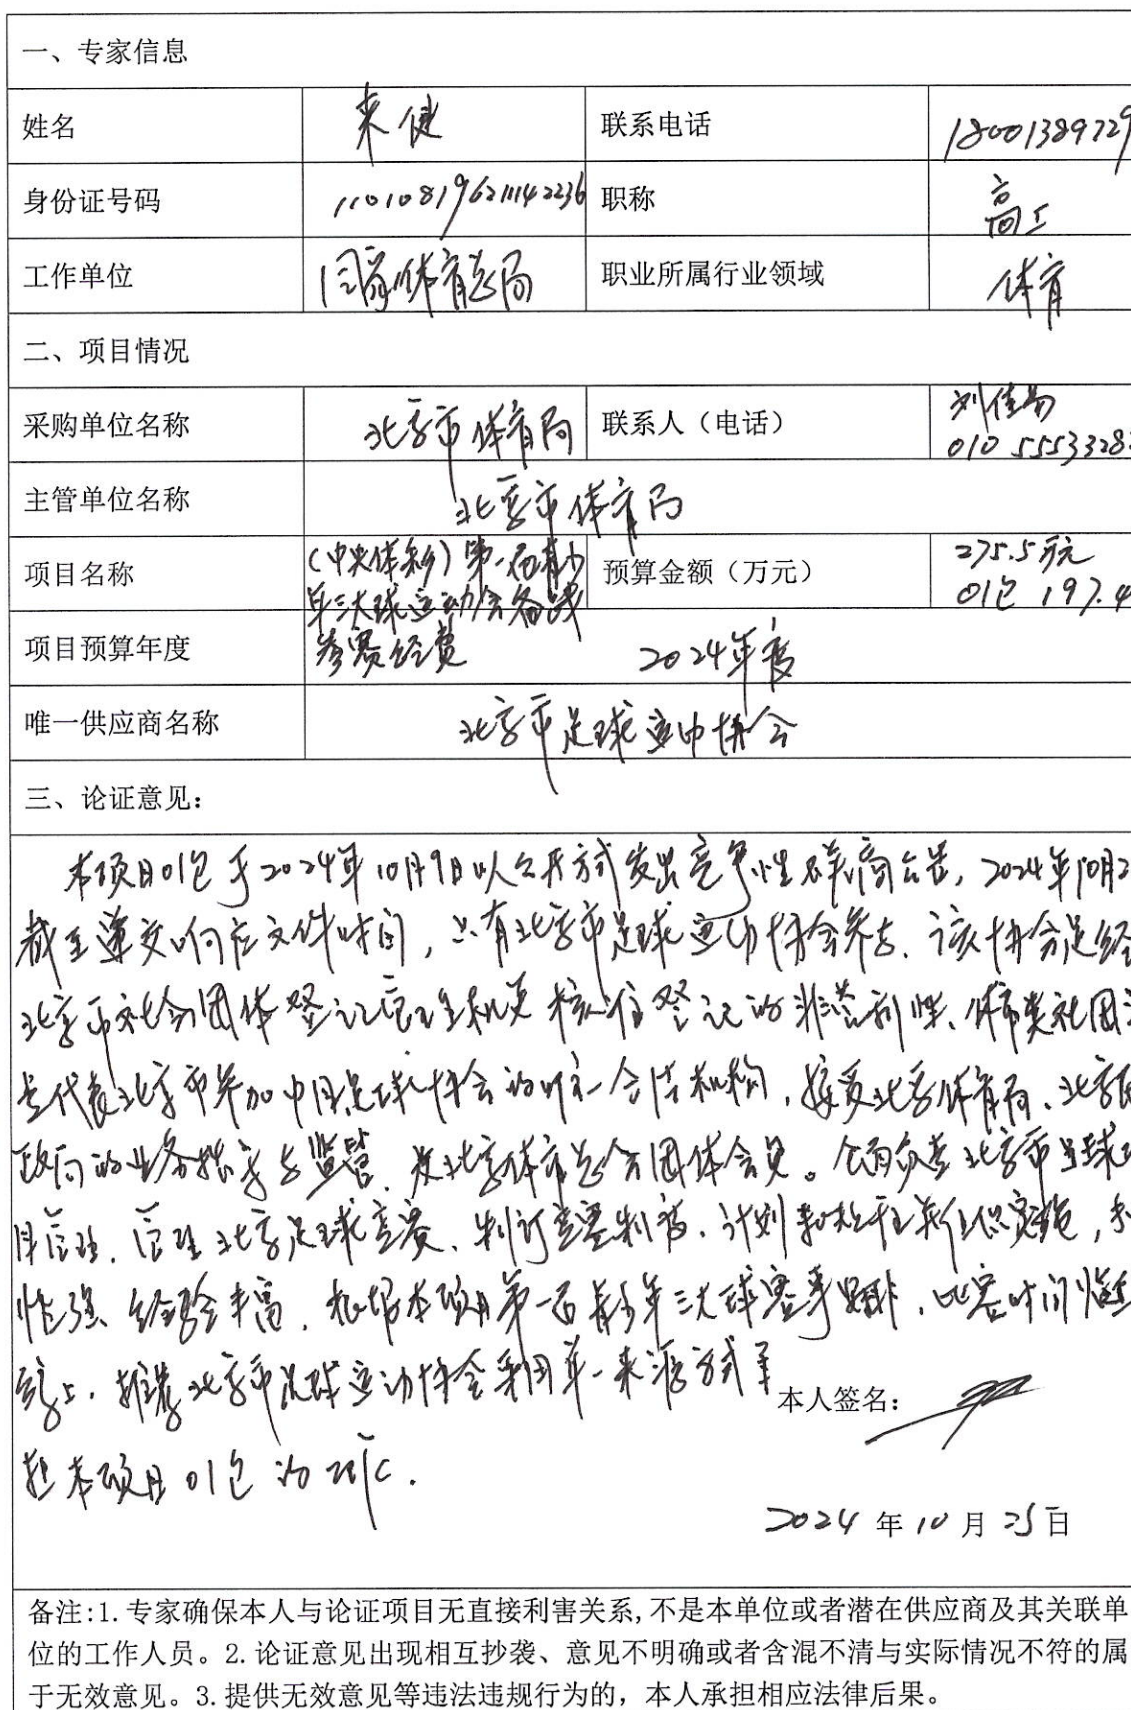 一、专家信息
姓名 来健 联系电话 18001389729
身份证号码 110108196211142236 职称 高工
工作单位 国家体育总局 职业所属行业领域 体育
二、项目情况
采购单位名称 北京市体育局 联系人（电话） 刘佳易
010 5553328
主管单位名称 北京市体育局
项目名称 (中央体彩)第一届青少
年三大球运动会备战
参赛经费
预算金额（万元） 275.5万元
01包 197.4
项目预算年度 2024年度
唯一供应商名称 北京市足球运动协会
三、论证意见：
本项目01包于2024年10月9日以公开方式发出竞争性磋商公告，2024年10月2
截至递交响应文件时间，只有北京市足球运动协会参与．该协会是经
北京市社会团体登记管理机关核准登记的非营利性、体育类社团
是代表北京市参加中国足球协会的唯一合法机构，接受北京体育局、北京民
政局的业务指导与监督．是北京体育总会团体会员。全面负责北京市足球
目管理．管理北京足球竞赛、制订竞赛制度、计划和规程并组织实施，
性强、经验丰富．根据本项目第一届青少年三大球赛事，比赛时间临
综上，推荐北京市足球运动协会采用单一来源方式承
担本项目01包的工作．
本人签名：
2024 年 10 月 25 日
备注:1.专家确保本人与论证项目无直接利害关系,不是本单位或者潜在供应商及其关联单
位的工作人员。2.论证意见出现相互抄袭、意见不明确或者含混不清与实际情况不符的属
于无效意见。3.提供无效意见等违法违规行为的，本人承担相应法律后果。